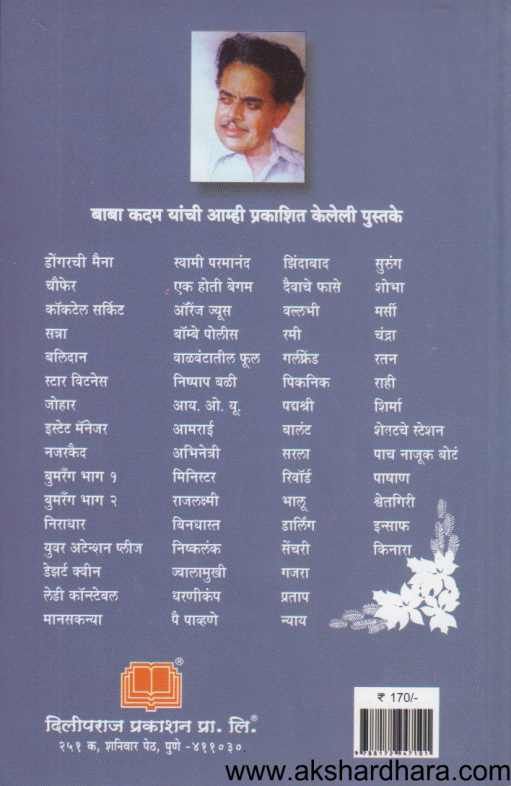 बाबा कदम यांची आम्ही प्रकाशित केलेली पुस्तके
डोंगरची मैना स्वामी परमानंद झिंदाबाद सुरुंग
चौफेर एक होती बेगम दैवाचे फासे शोभा
कॉकटेल सर्किट ऑरेंज ज्यूस वल्लभी मर्सी
सत्रा बॉम्बे पोलीस रमी चंद्रा
बलिदान वाळवंटातील फूल गर्लफ्रेंड रतन
स्टार विटनेस निष्पाप बळी पिकनिक राही
जोहार आय. ओ. यू. पद्मश्री शिर्मा
इस्टेट मॅनेजर आमराई बालंट शेवटचे स्टेशन
नजरकैद अभिनेत्री सरला पाच नाजूक बोटं
बुमरँग भाग १ मिनिस्टर रिवॉर्ड पाषाण
बुमरँग भाग २ राजलक्ष्मी भालू श्वेतगिरी
निराधार बिनधास्त डार्लिंग इन्साफ
युवर अटेन्शन प्लीज निष्कलंक सेंचरी किनारा
डेझर्ट क्वीन ज्वालामुखी गजरा
लेडी कॉन्स्टेबल धरणीकंप प्रताप
मानसकन्या पै पाव्हणे न्याय
®
दिलीपराज प्रकाशन प्रा. लि.®
२५१ क, शनिवार पेठ, पुणे -४११०३०.
₹ 170/-
www.akshardhara.com